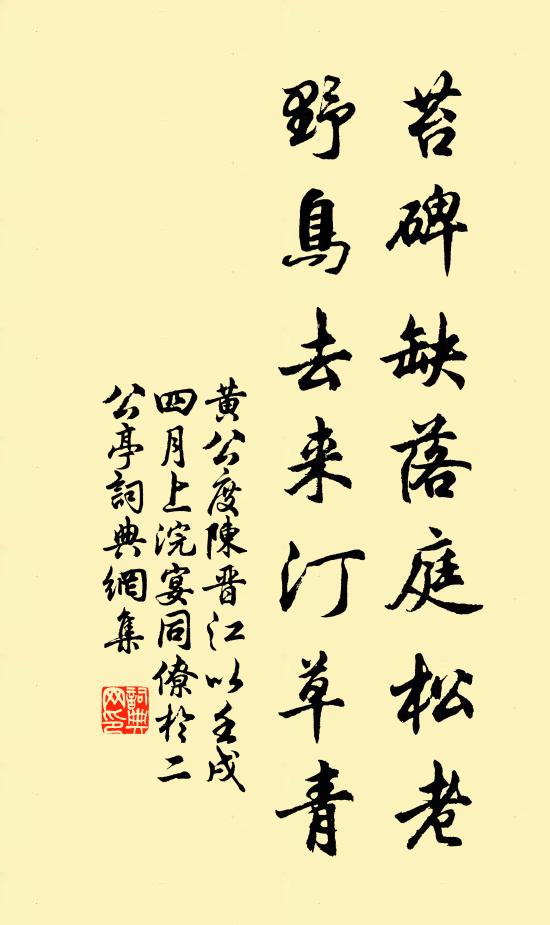 苔碑缺落庭松老
野鳥去来汀草青
黄公度陳晋江以壬戌
四月上浣宴同僚於二
公亭詞典網集
詞典網印